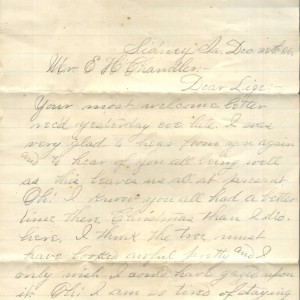 Sidney Ia. Dec
Mr E H Chandler,-
Dear Lige:-
Your most welcome letter
rec'd yesterday eve late. I was
very glad to hear from you again
and to hear of you all being well
as this leaves us all at present
Oh! I know you all had a better
time then Christmas than I did
here. I think the tree must
have looked awful pretty and I
only wish I could have gazed upon
it. Oh! I am so tired of staying